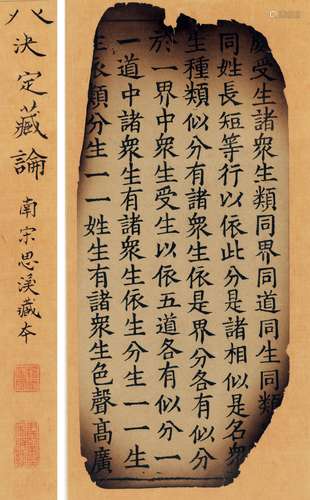 受生諸衆生類同界同道同生同類
同姓長短等行以依此分是諸相似是名衆
生種類似分有諸衆生依是界分各有似分
於一界中衆生受生以依五道各有似分一
一道中諸衆生有諸衆生依生分生一一生
生依類分生一一姓生有諸衆生色聲高廣
決定藏論
南宋思溪藏本